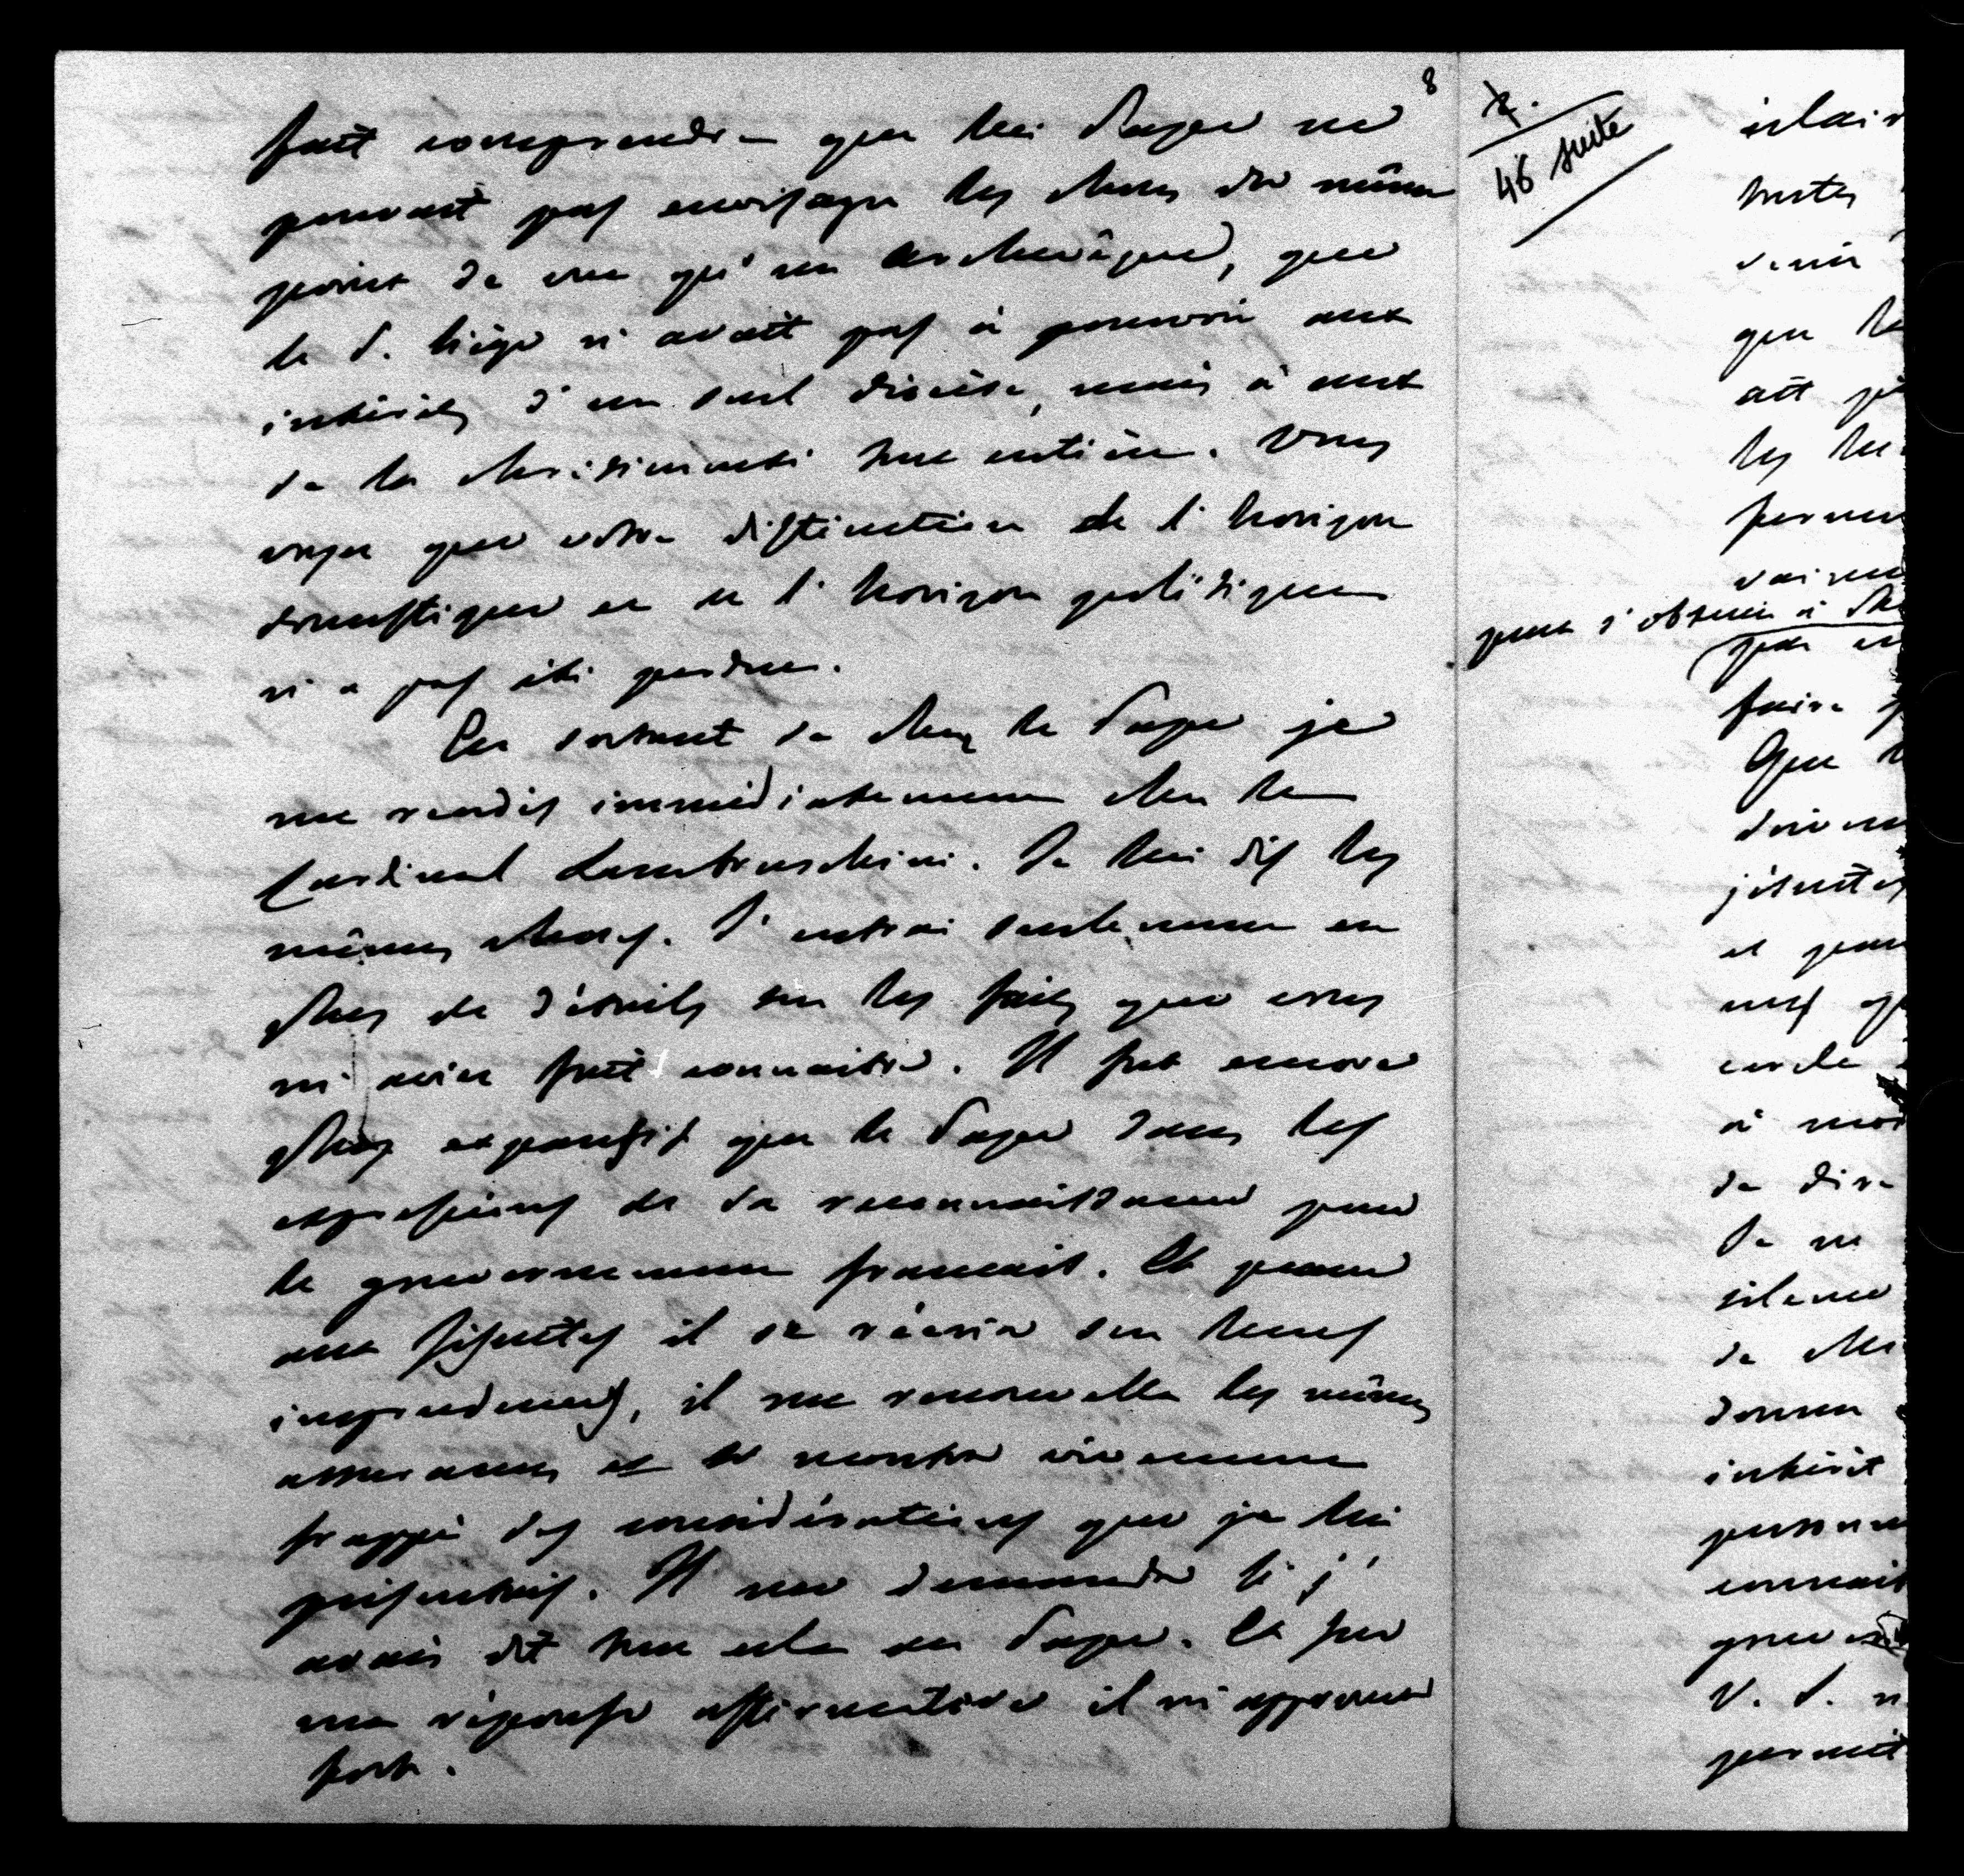 8
fait comprendre que lui Pape ne
pouvait pas envisager les choses du même
point de vue qu'un archevêque, que
le S. Siège n'avait pas à pourvoir aux
intérêts d'un seul diocèse, mais à ceux
de la chrétienneté toute entière. Vous
voyez que votre distinction de l'horizon
domestique et de l'horizon politique
n'a pas été perdue.
En sortant de chez le Pape je
me rendis immédiatement chez le
Cardinal Lambruschini. Je lui dis les
mêmes choses. J'entrai seulement en
plus de détails sur les faits que vous
m'aviez fait connaître. Il fut encore
plus expansif que le Pape dans les
expressions de sa reconnaissance pour
le gouvernement français. Et quand
aux Jésuites il se récria sur leurs
imprudences, il me renouvella les mêmes
assurances et se montra vivement
frappé des considérations que je lui
présentais. Il me demanda si j'
avais dit tout cela au Pape. Et sur
ma réponse affirmative il m'approuva
fort.
7.
46 suite
éclair
toutes
venir
que le
ait
les
vainc
pour s'obtenir à
faire
Que
jésuites
et pour
cercle
à moi
de dire
Je ne
silence
de
donner
intérêt
personne
connaît
gouver
V. S. n
permet